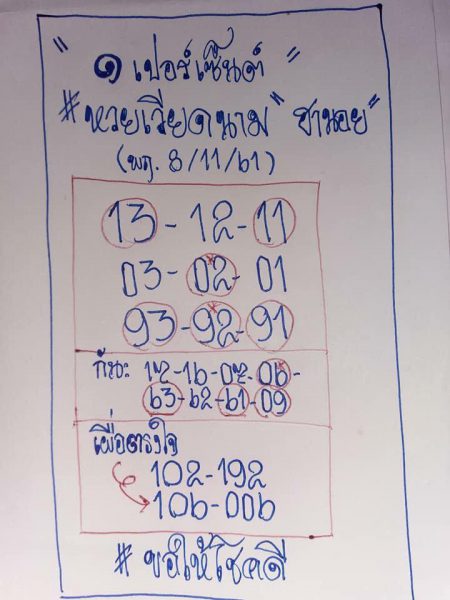 " ๑ เปอร์เซ็นต์ "
#หวยเวียดนาม "ฮานอย"
(พฤ. 8/11/61)
13-12-11
03-02-01
93-92-91
กันะ 17-16-07-06-
63-62-61-09
เผื่อตรงใจ
102-192
106-006
# ขอให้โชคดี